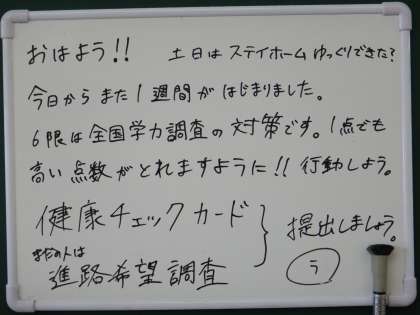 おはよう!! 土日はステイホームゆっくりできた?
今日からまた1週間がはじまりました。
6限は全国学力調査の対策です。1点でも
高い点数がとれますように!! 行動しよう。
健康チェックカード
まだの人は
進路希望調査
提出しましょう。
う